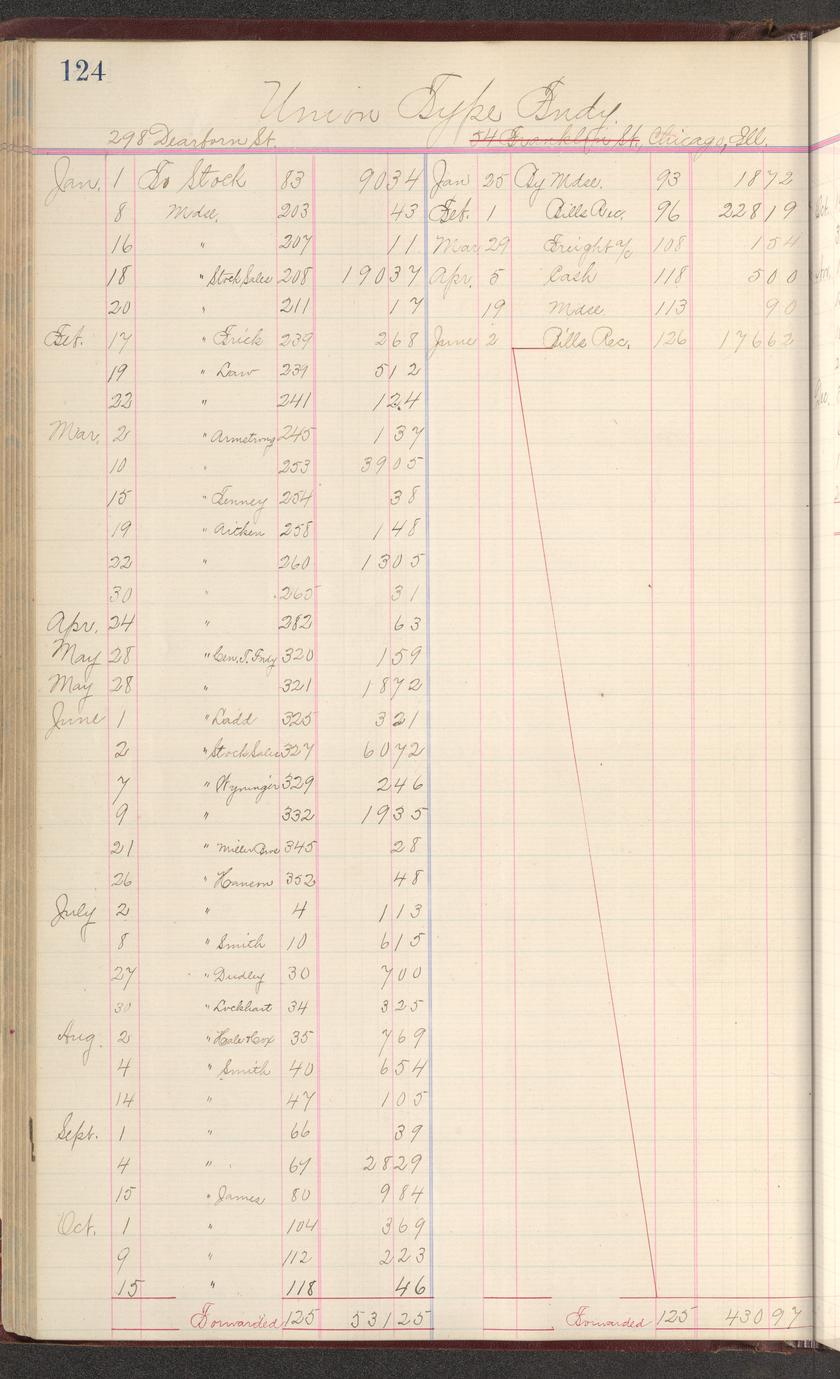 124
Union Type Fndy.
298 Dearborn St. 54 Franklin St., Chicago, Ill.
Jan. 1 To Stock 83 9034 Jan 25 By Mdse. 93 1872
8 Mdse. 203 43 Feb. 1 Bills Rec. 96 22819
16 " 207 11 Mar 29 Freight a/c 108 154
18 " Stock Sales 208 19037 Apr. 5 Cash 118 500
20 " 211 17 19 Mdse 113 90
Feb. 17 " Frick 239 268 June 2 Bills Rec. 126 17662
19 " Law 239 512
22 " 241 124
Mar. 2 " Armstrong 245 137
10 " 253 3905
15 " Tenney 254 38
19 " Aitken 258 148
22 " 260 1305
30 " 265 31
Apr. 24 " 282 63
May 28 " Cen. T. Fndy 320 159
May 28 " 321 1872
June 1 " Ladd 325 321
2 " Stock Sales 327 6072
7 " Wyninger 329 246
9 " 332 1935
21 " Miller Bros 345 28
26 " Hansen 352 48
July 2 " 4 113
8 " Smith 10 615
27 " Dudley 30 700
30 " Lockhart 34 325
Aug. 2 " Hale & Cox 35 769
4 " Smith 40 654
14 " 47 105
Sept. 1 " 66 39
4 " 67 2829
15 " James 80 984
Oct. 1 " 104 369
9 " 112 223
15 " 118 46
Forwarded 125 53125 Forwarded 125 43097